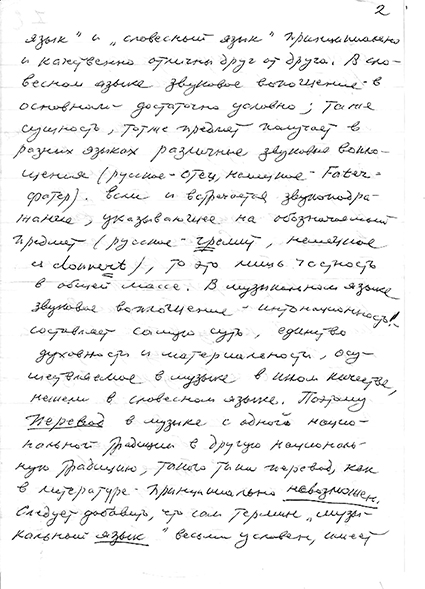 2
язык" и „словесный язык" принципиально
и качественно отличны друг от друга. В сло-
весном языке звуковое воплощение - в
основном - достаточно условно; та же
сущность, тот же предмет получает в
разных языках различные звуковые вопло-
щения (русское - отец, немецкое - Fater -
фатер). Если и встречается звукоподра-
жание, указывающее на обозначаемый
предмет (русское - гремит, немецкое
donnert), то это лишь частность
в общей массе. В музыкальном языке
звуковое воплощение - интонационность! -
составляет самую суть, единство
духовности и материальности, осу-
ществляемое в музыке в ином качестве,
нежели в словесном языке. Поэтому
перевод в музыке с одного нацио-
нальной традиции в другую националь-
ную традицию, такого типа перевод, как
в литературе - принципиально невозможен.
Следует добавить, что сам термин „музы-
кальный язык" весьма условен, имеет